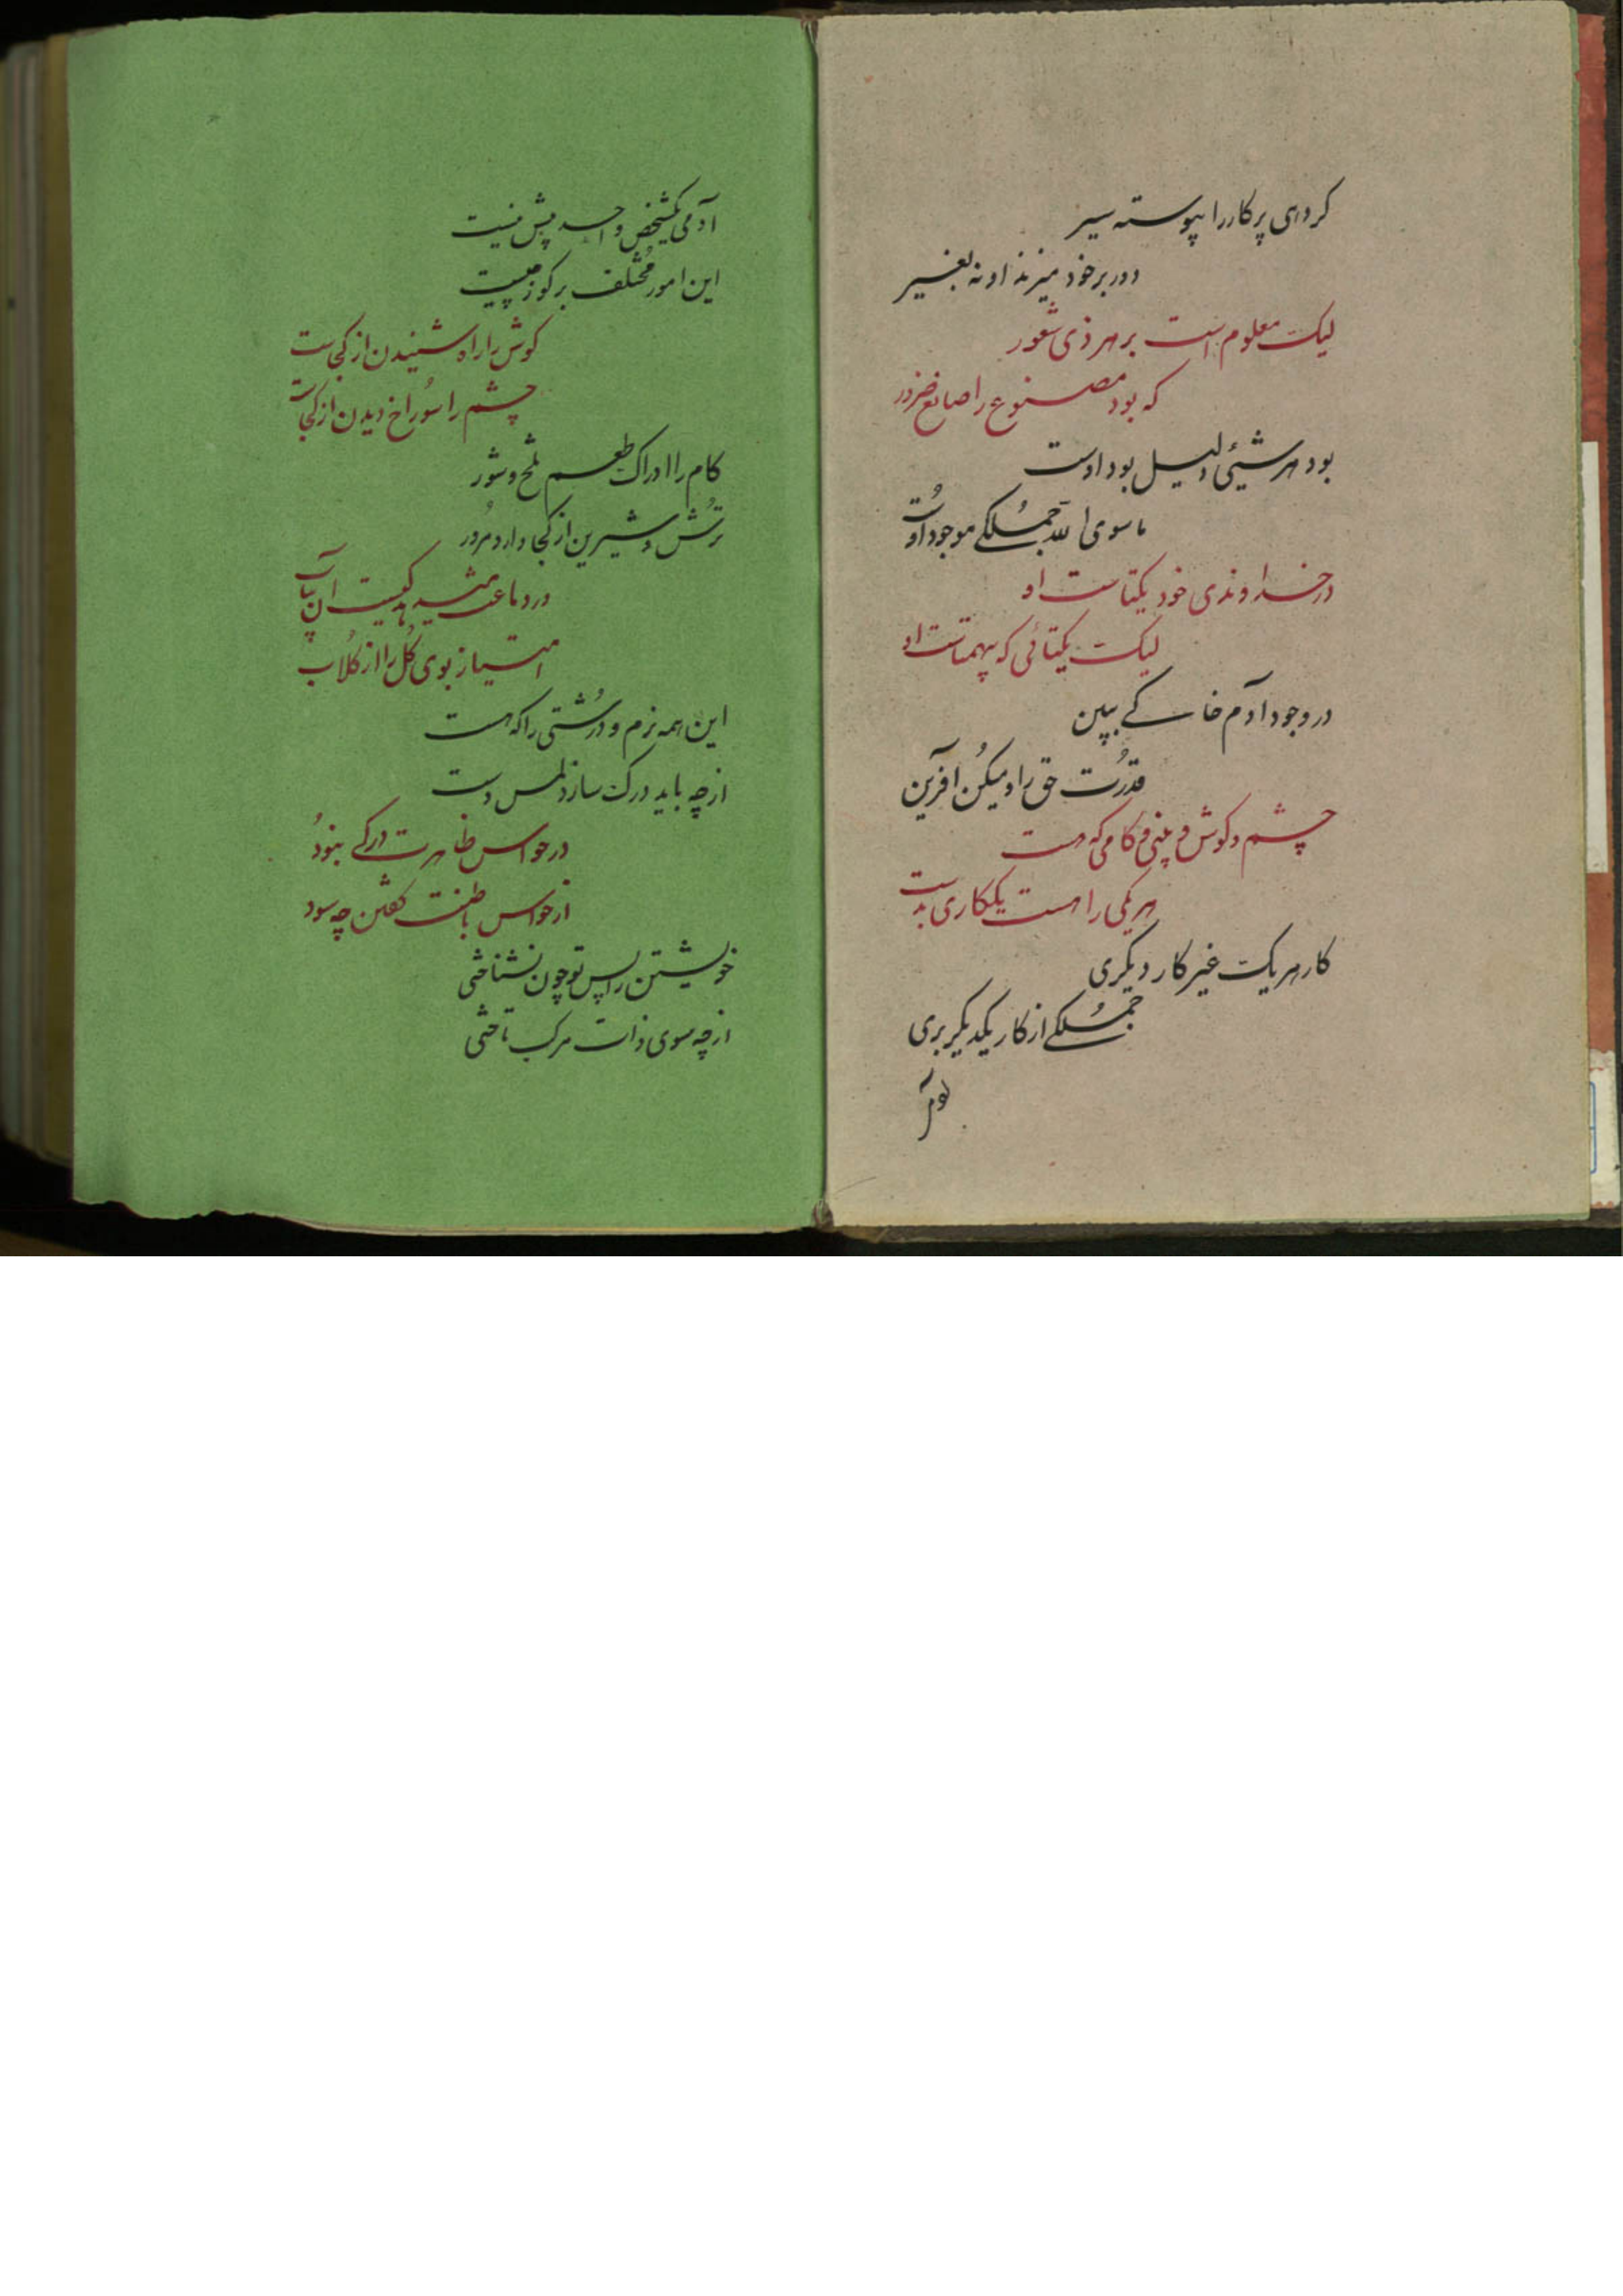 کرده‌ی پرکار را پیوسته سیر
دور بر خود میزند او نه بغیر
لیک معلوم است بر هر ذی شعور
که بود مصنوع را صانع ضرور
بود هر شیئی دلیل بود اوست
ما سوی الله جملکی موجود اوست
در خداوندی خود یکتاست او
لیک یکتائی که بیهمتاست او
در وجود آدم خاکی ببین
قدرت حق را و میکن آفرین
چشم و کوش و بینی و کامی که هست
هر یکی را هست یککاری بدست
کار هر یک غیر کار دیکری
جملکی از کار یکدیکر بری
آدمی یکشخص واحد بیش نیست
این امور مختلف بر کوز چیست
کوش را راه شنیدن از کجاست
چشم را سوراخ دیدن از کجاست
کام را ادراک طعم تلخ و شور
ترش و شیرین از کجا دارد مرور
در دماغت
امتیاز بوی کل را از کلاب
این همه نرم و درشتی را که هست
از چه باید درک سازد لمس دست
در حواس ظاهرت درکی نبود
از حواس باطنت کفتن چه سود
خویشتن را پس تو چون نشناختی
از چه سوی ذات مرکب تاختی